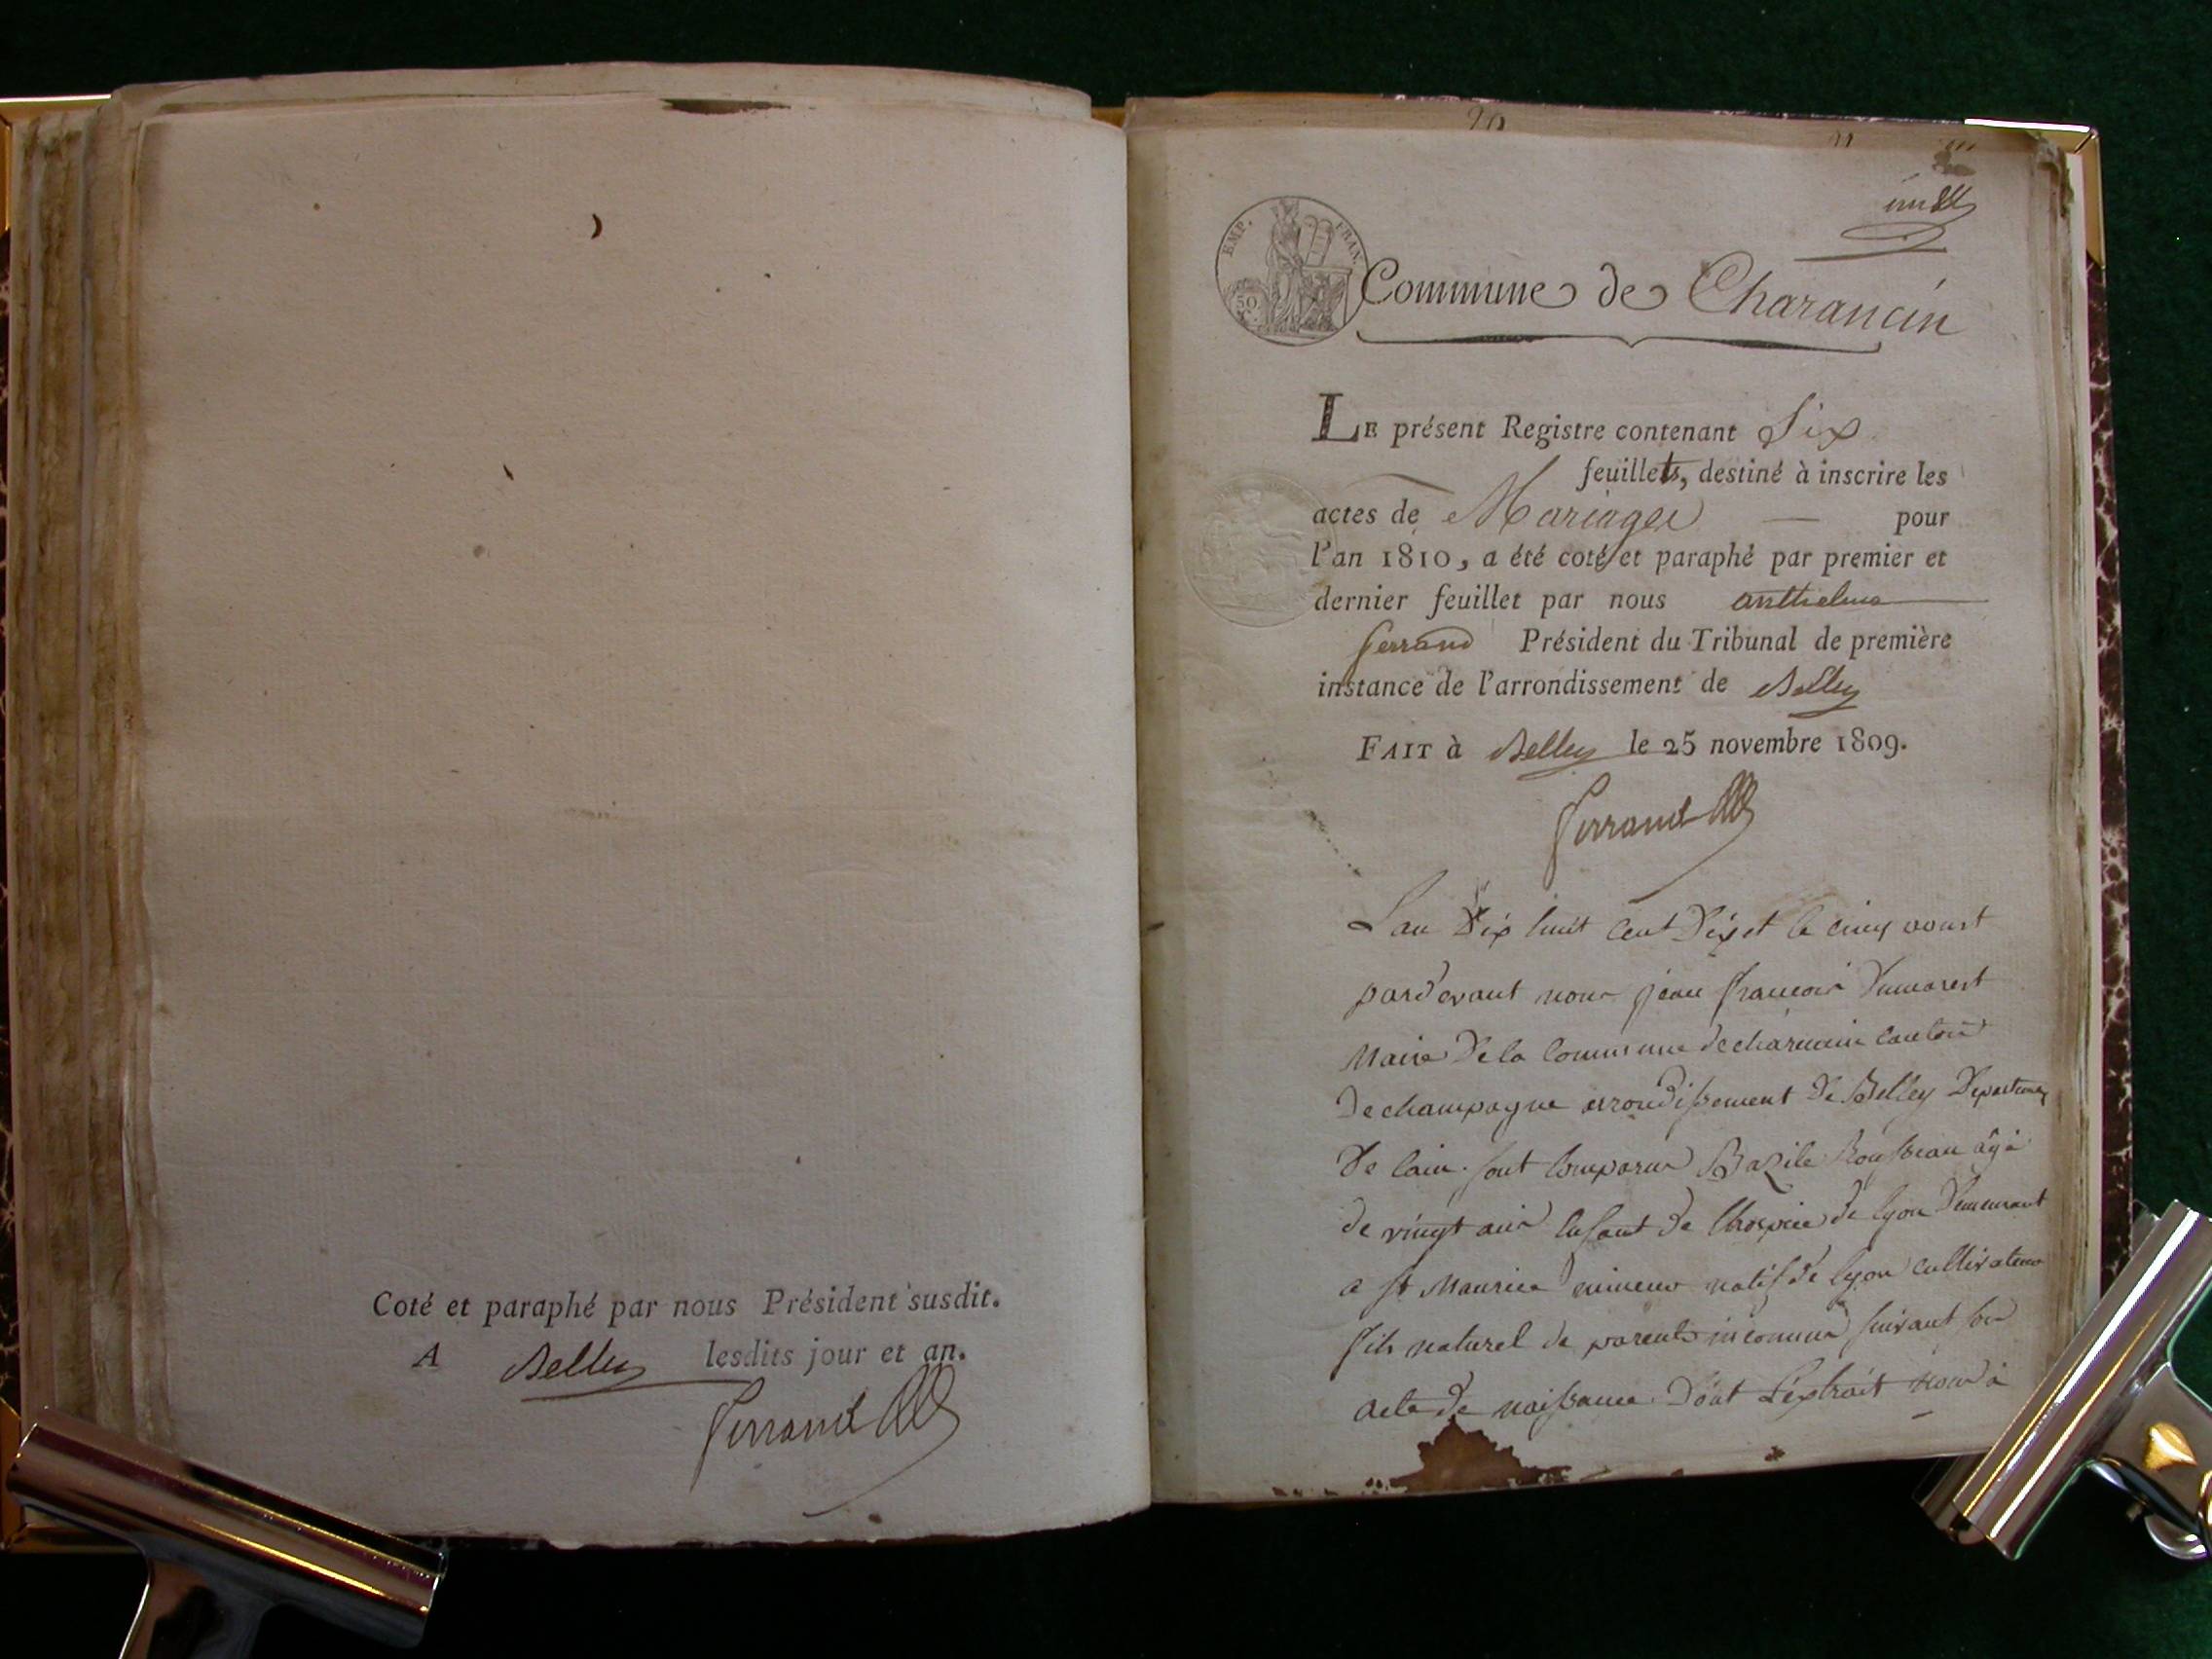 Coté et paraphé par nous Président susdit.
A Belley lesdits jour et an.
Ferrand
EMP. FRAN.
50
Commune de Charancin
LE présent Registre contenant Six
feuillets, destiné à inscrire les
actes de Mariages — pour
l'an 1810, a été coté et paraphé par premier et
dernier feuillet par nous anthelme
ferrand Président du Tribunal de première
instance de l'arrondissement de Belley
FAIT à Belley le 25 novembre 1809.
Ferrand
L'an Dix huit Cent Dix et le cinq aoust
pardevant nous jean françois Dumarest
Maire De la Commune de charancin canton
De champagne arrondissement De Belley Departement
De lain. sont Comparus Bazile Rousseau âgé
de vingt ans Enfant de Lhospice de lyon Demeurant
a st Maurice mineur natif de lyon cultivateur
fils naturel de parents inconnus suivant son
acte de naissance. Dont L'extrait nous à